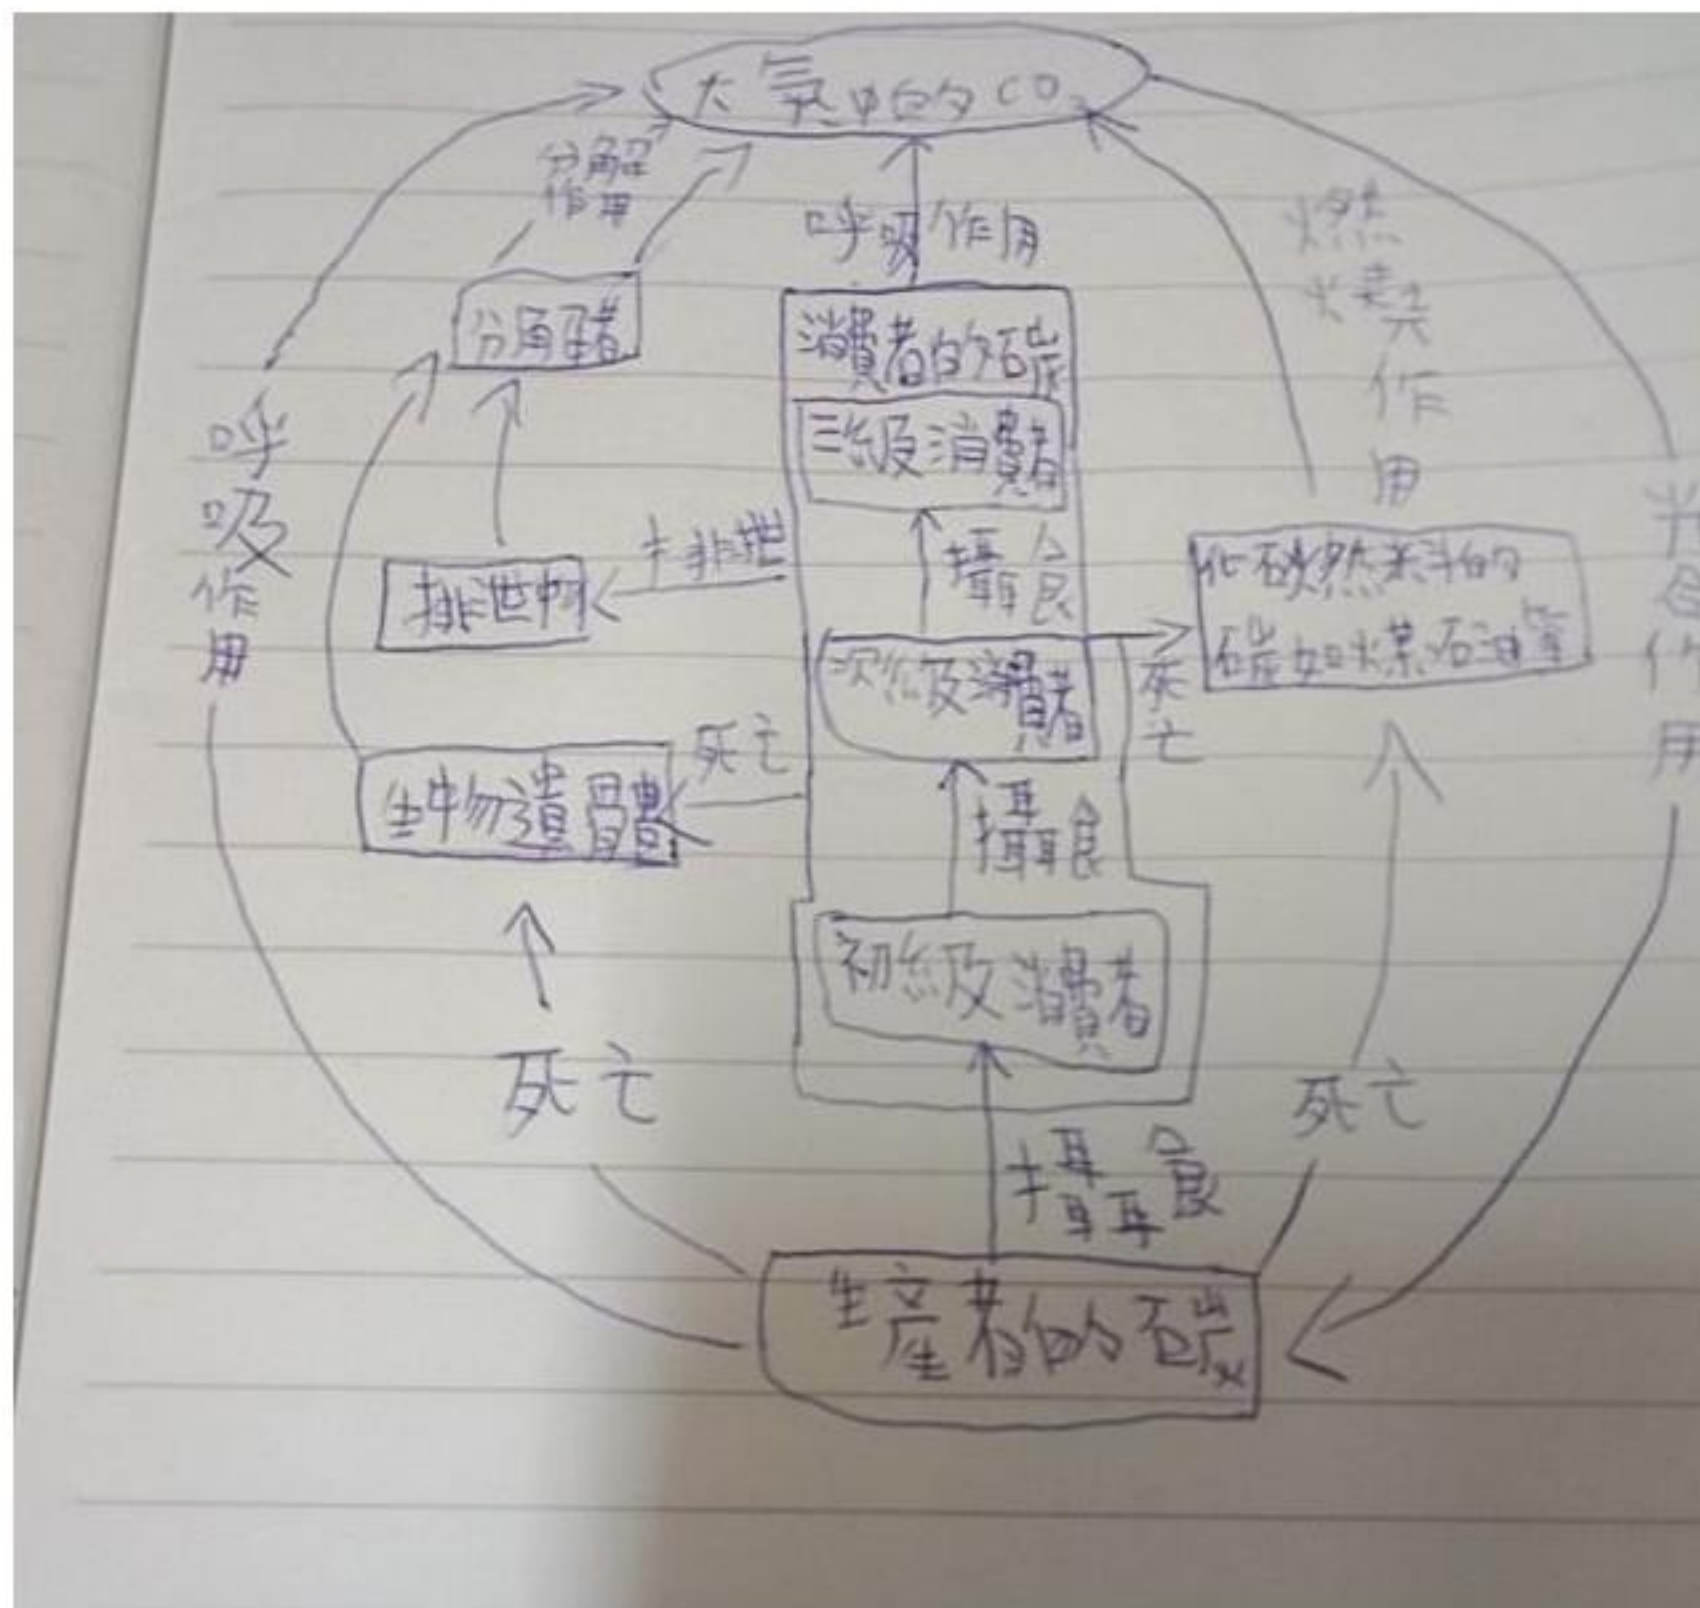 大氣中的CO₂
分解
作用
呼吸作用
燃
燒
作
用
分解者
消費者的碳
三級消費者
呼
吸
作
用
排泄
攝食
光
合
作
用
排泄物
化石燃料的
碳如煤石油等
次級消費者
死
亡
死亡
生物遺體
攝食
初級消費者
死亡
死亡
攝食
生產者的碳